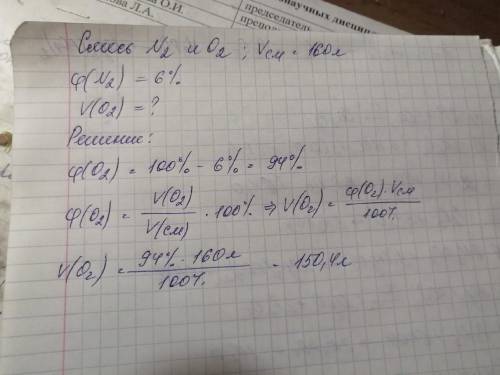 научных дисцип
О.И.
ова Л.А.
председатель
препо
Смесь N2 и O2; Vсм = 160л
φ(N2) = 6%
V(O2) = ?
Решение:
φ(O2) = 100% - 6% = 94%
φ(O2) = V(O2) / V(см) · 100% ⇒ V(O2) = φ(O2) · Vсм / 100%
V(O2) = 94% · 160л / 100% = 150,4л